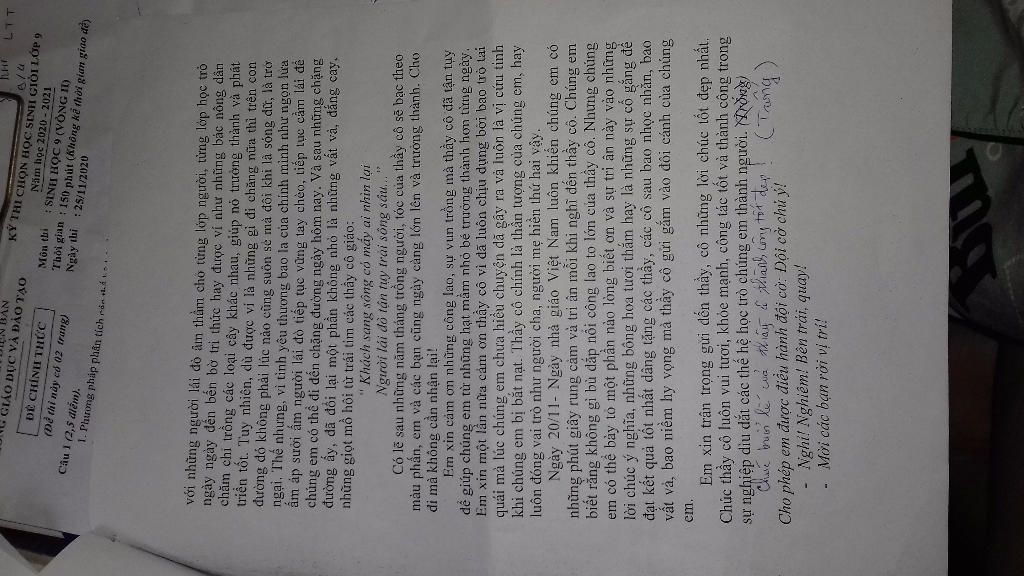 LTT
KỲ THI CHỌN HỌC SINH GIỎI LỚP 9
Năm học 2020 - 2021
GIÁO DỤC VÀ ĐÀO TẠO
Môn thi : SINH HỌC 9 (VÒNG II)
Thời gian : 150 phút (Không kể thời gian giao đề)
Ngày thi : 25/11/2020
ĐỀ CHÍNH THỨC
(Đề thi này có 02 trang)
Câu 1 (2,5 điểm).
1. Phương pháp phân tích
với những người lái đò âm thầm cho từng lớp người, từng lớp học trò
ngày ngày đến bến bờ tri thức hay được ví như những bác nông dân
chăm chỉ trồng các loại cây khác nhau, giúp nó trưởng thành và phát
triển tốt. Tuy nhiên, dù được ví là những gì đi chăng nữa thì trên con
đường đó không phải lúc nào cũng suôn sẻ mà đôi khi là sóng dữ, là trở
ngại. Thế nhưng, vì tình yêu thương bao la của chính mình như ngọn lửa
ấm áp sưởi ấm người lái đò tiếp tục vững tay chèo, tiếp tục cầm lái để
chúng em có thể đi đến chặng đường ngày hôm nay. Và sau những chặng
đường ấy, đã đổi lại một phần không nhỏ là những vất vả, đắng cay,
những giọt mồ hôi từ trái tim các thầy cô giáo:
" Khách sang sông có mấy ai nhìn lại
Người lái đò tận tụy trải sông sâu. "
Có lẽ sau những năm tháng trồng người, tóc của thầy cô sẽ bạc theo
màu phấn, em và các bạn cũng ngày càng lớn lên và trưởng thành. Cho
đi mà không cần nhận lại!
Em xin cảm ơn những công lao, sự vun trồng mà thầy cô đã tận tụy
để giúp chúng em từ những hạt mầm nhỏ bé trưởng thành hơn từng ngày.
Em xin một lần nữa cảm ơn thầy cô vì đã luôn chịu đựng bởi bao trò tai
quái mà lúc chúng em chưa hiểu chuyện đã gây ra và luôn là vị cứu tinh
khi chúng em bị bắt nạt. Thầy cô chính là thần tượng của chúng em, hay
luôn đóng vai trò như người cha, người mẹ hiền thứ hai vậy.
Ngày 20/11- Ngày nhà giáo Việt Nam luôn khiến chúng em có
những phút giây rung cảm và tri ân mỗi khi nghĩ đến thầy cô. Chúng em
biết rằng không gì bù đắp nổi công lao to lớn của thầy cô. Nhưng chúng
em có thể bày tỏ một phần nào lòng biết ơn và sự tri ân này vào những
lời chúc ý nghĩa, những bông hoa tươi thắm hay là những sự cố gắng để
đạt kết quả tốt nhất dâng tặng các thầy, các cô sau bao nhọc nhằn, bao
vất vả, bao niềm hy vọng mà thầy cô gửi gắm vào đôi cánh của chúng
em.
Em xin trân trọng gửi đến thầy, cô những lời chúc tốt đẹp nhất.
Chúc thầy cô luôn vui tươi, khỏe mạnh, công tác tốt và thành công trong
sự nghiệp dìu dắt các thế hệ học trò chúng em thành người.
Chúc buổi lễ của thành công tốt đẹp! (Trang)
Cho phép em được điều hành đội cờ: Đội cờ chú ý!
- Nghỉ! Nghiêm! Bên trái, quay!
- Mời các bạn rời vị trí!